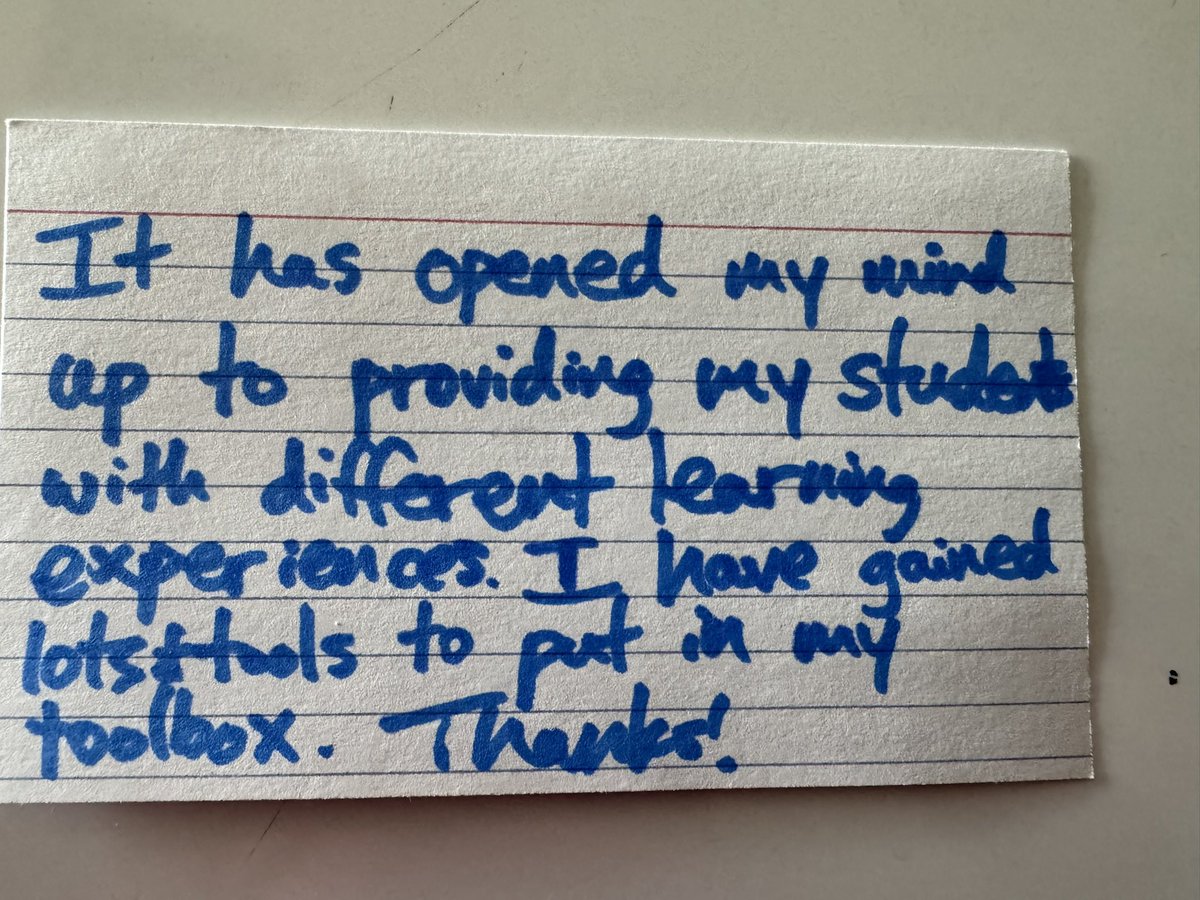 It has opened my mind
up to providing my students
with different learning
experiences. I have gained
lots + tools to put in my
toolbox. Thanks!